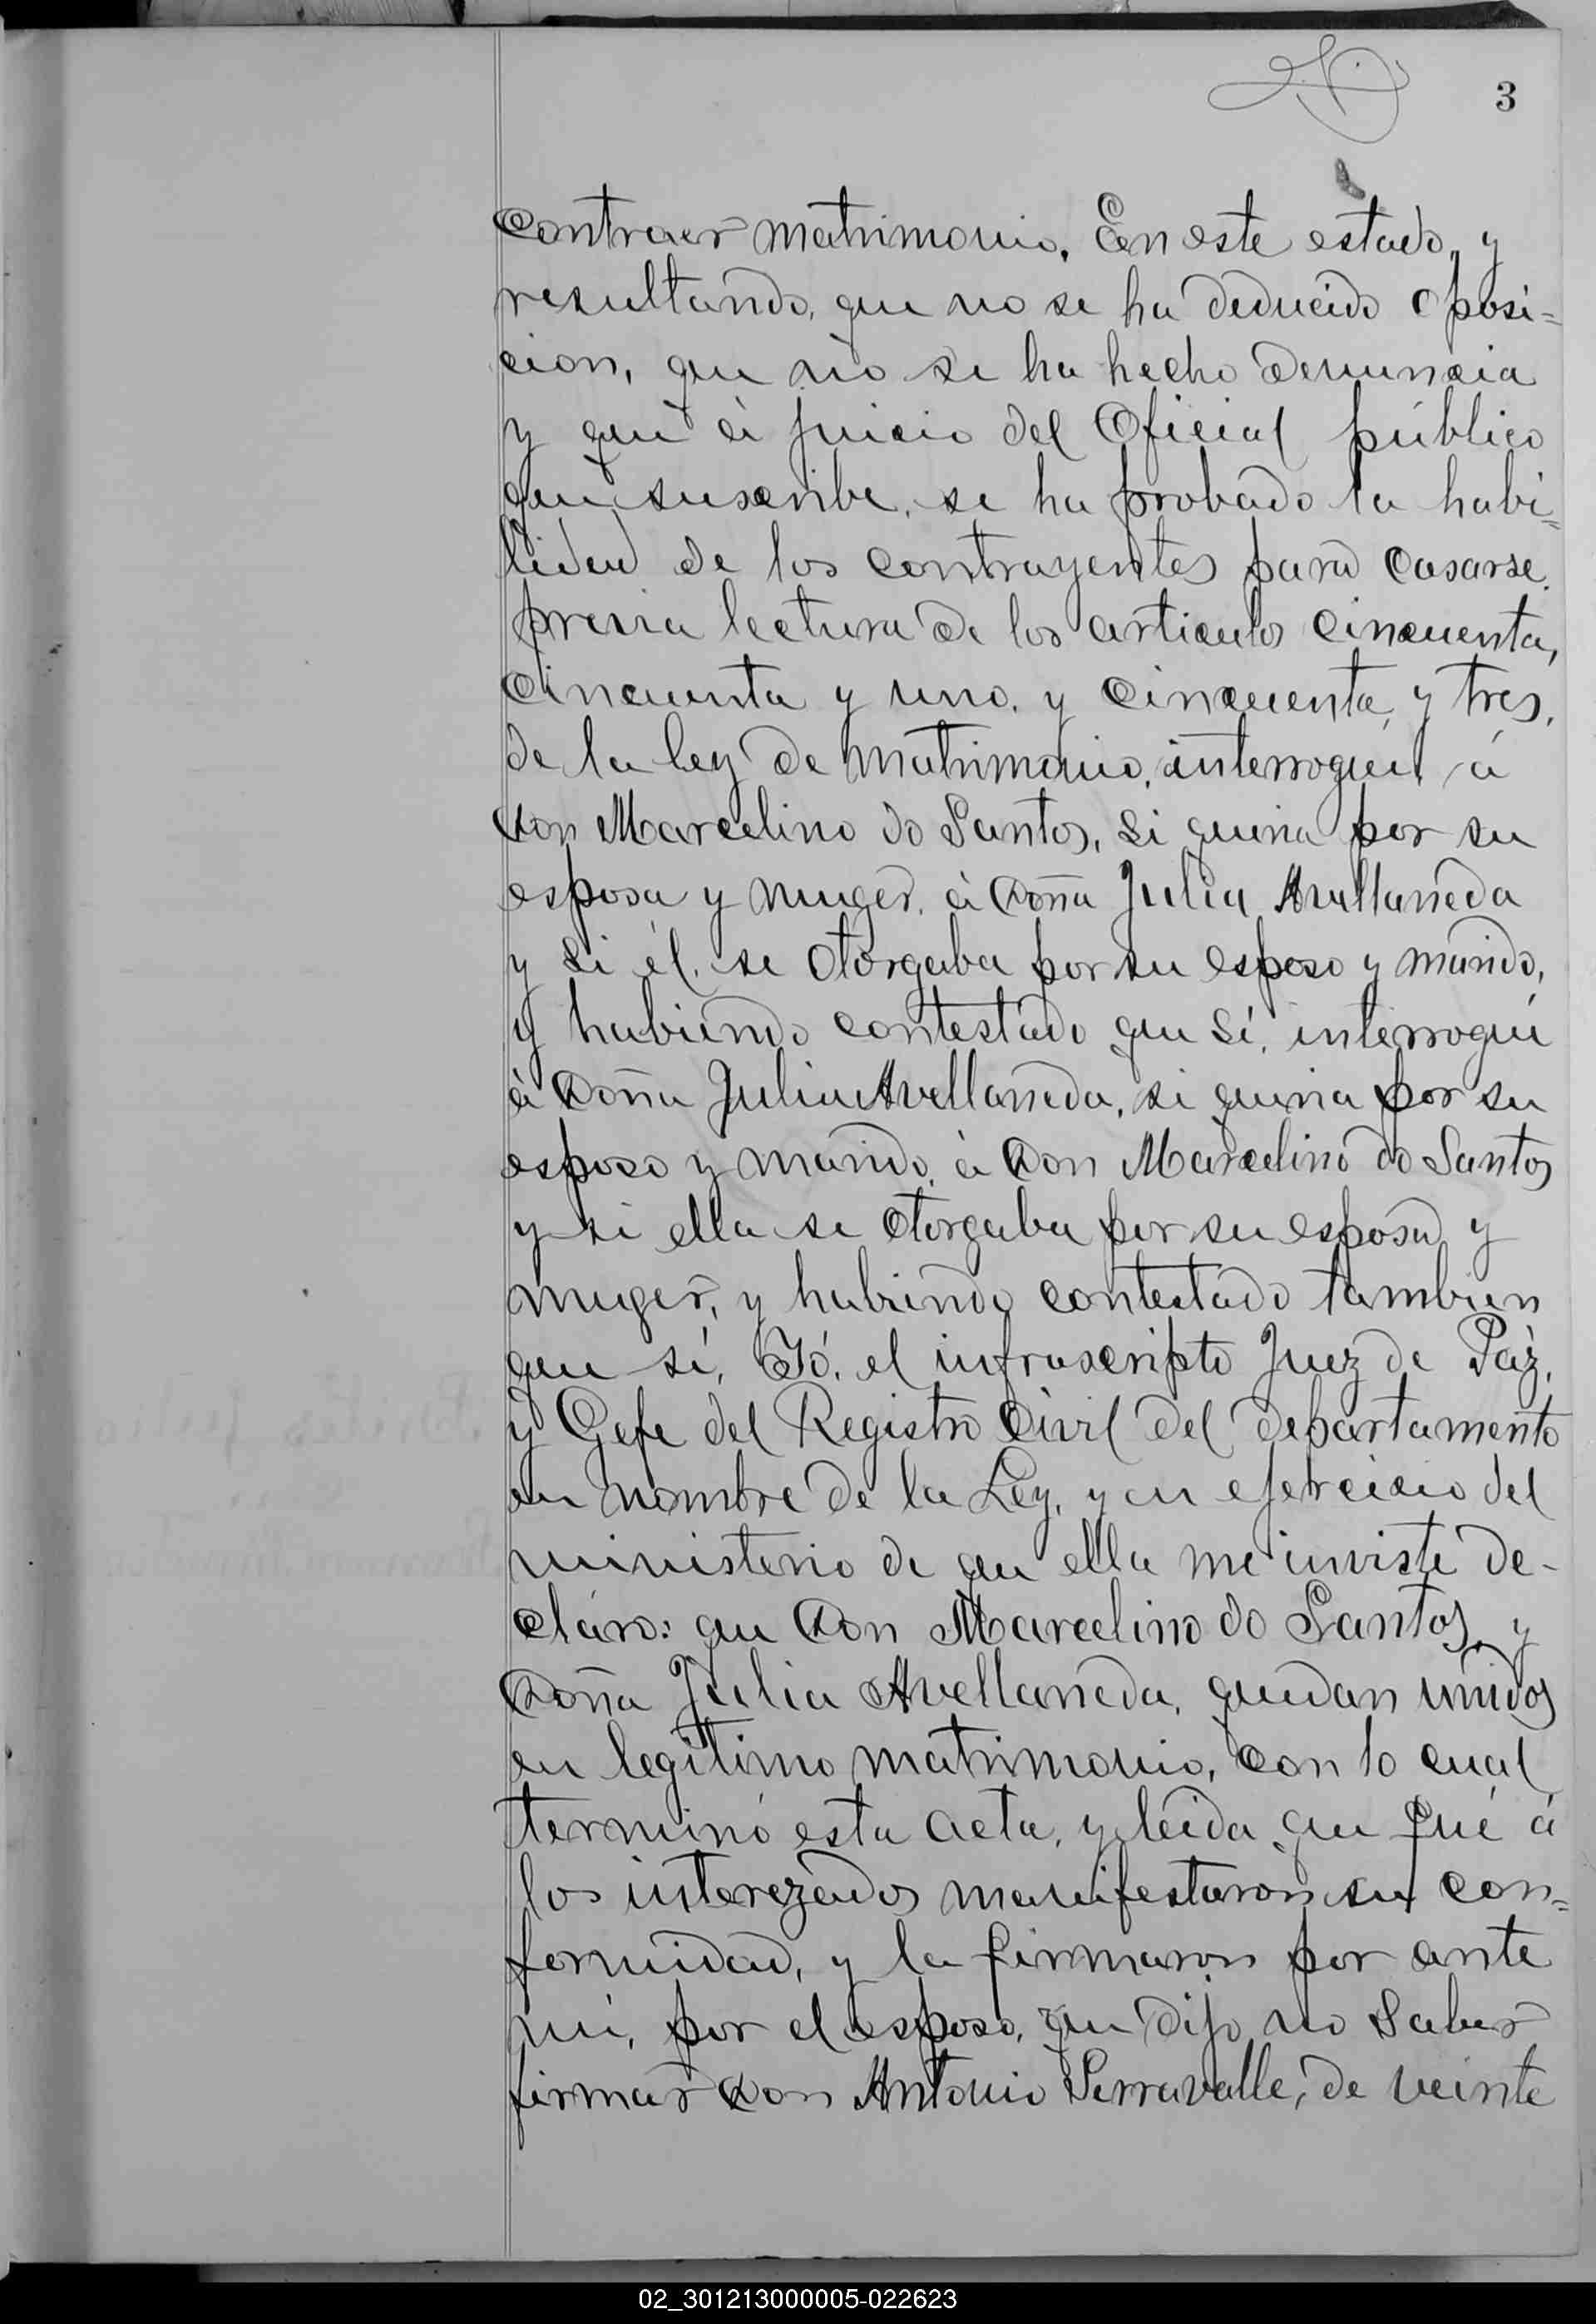 3
contraer matrimonio. En este estado, y
resultando, que no se ha deducido oposi=
cion, que no se ha hecho denuncia
y que á juicio del Oficial público
que suscribe, se ha probado la habi=
lidad de los contrayentes para casarse.
prévia lectura de los articulos cincuenta,
cincuenta y uno, y cincuenta, y tres,
de la ley de matrimonio, interrogué, á
Don Marcelino do Santos, si queria por su
esposa y muger, á Doña Julia Avellaneda
y si él, se otorgaba por su esposo y marido,
y habiendo contestado que sí, interrogué
á Doña Julia Avellaneda, si queria por su
esposo y marido, á Don Marcelino do Santos
y si ella se otorgaba por su esposa, y
muger, y habiendo contestado tambien
que sí, Yó, el infrascripto Juez de Páz,
y Gefe del Registro Civil del departamento
en nombre de la Ley, y en ejercicio del
ministerio de que ella me inviste de-
claro: que Don Marcelino do Santos, y
Doña Julia Avellaneda, quedan unidos
en legítimo matrimonio, con lo cual
terminó esta acta, y leida que fué á
los interezados manifestaron su con=
formidad, y la firmaron por ante
mi, por el esposo, que dijo no saber
firmar Don Antonio Serravalle, de veinte
02_301213000005-022623